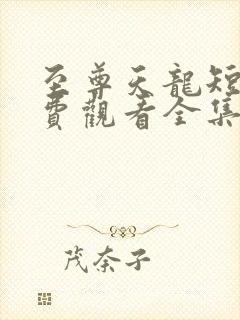 至尊天龍短
費觀看全集
茂奈子